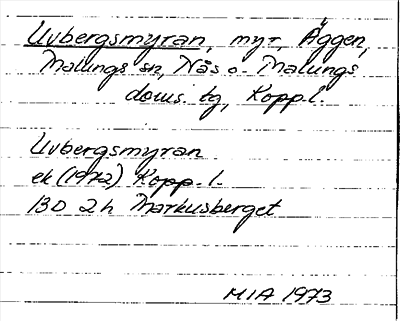 Uvbergsmyran, myr, Äggen,
Malungs sn, Näs o. Malungs
doms. bg, Kopp.l.
Uvbergsmyran
ek (1972) Kopp. l.
13D 2h Markusberget
MIA 1973